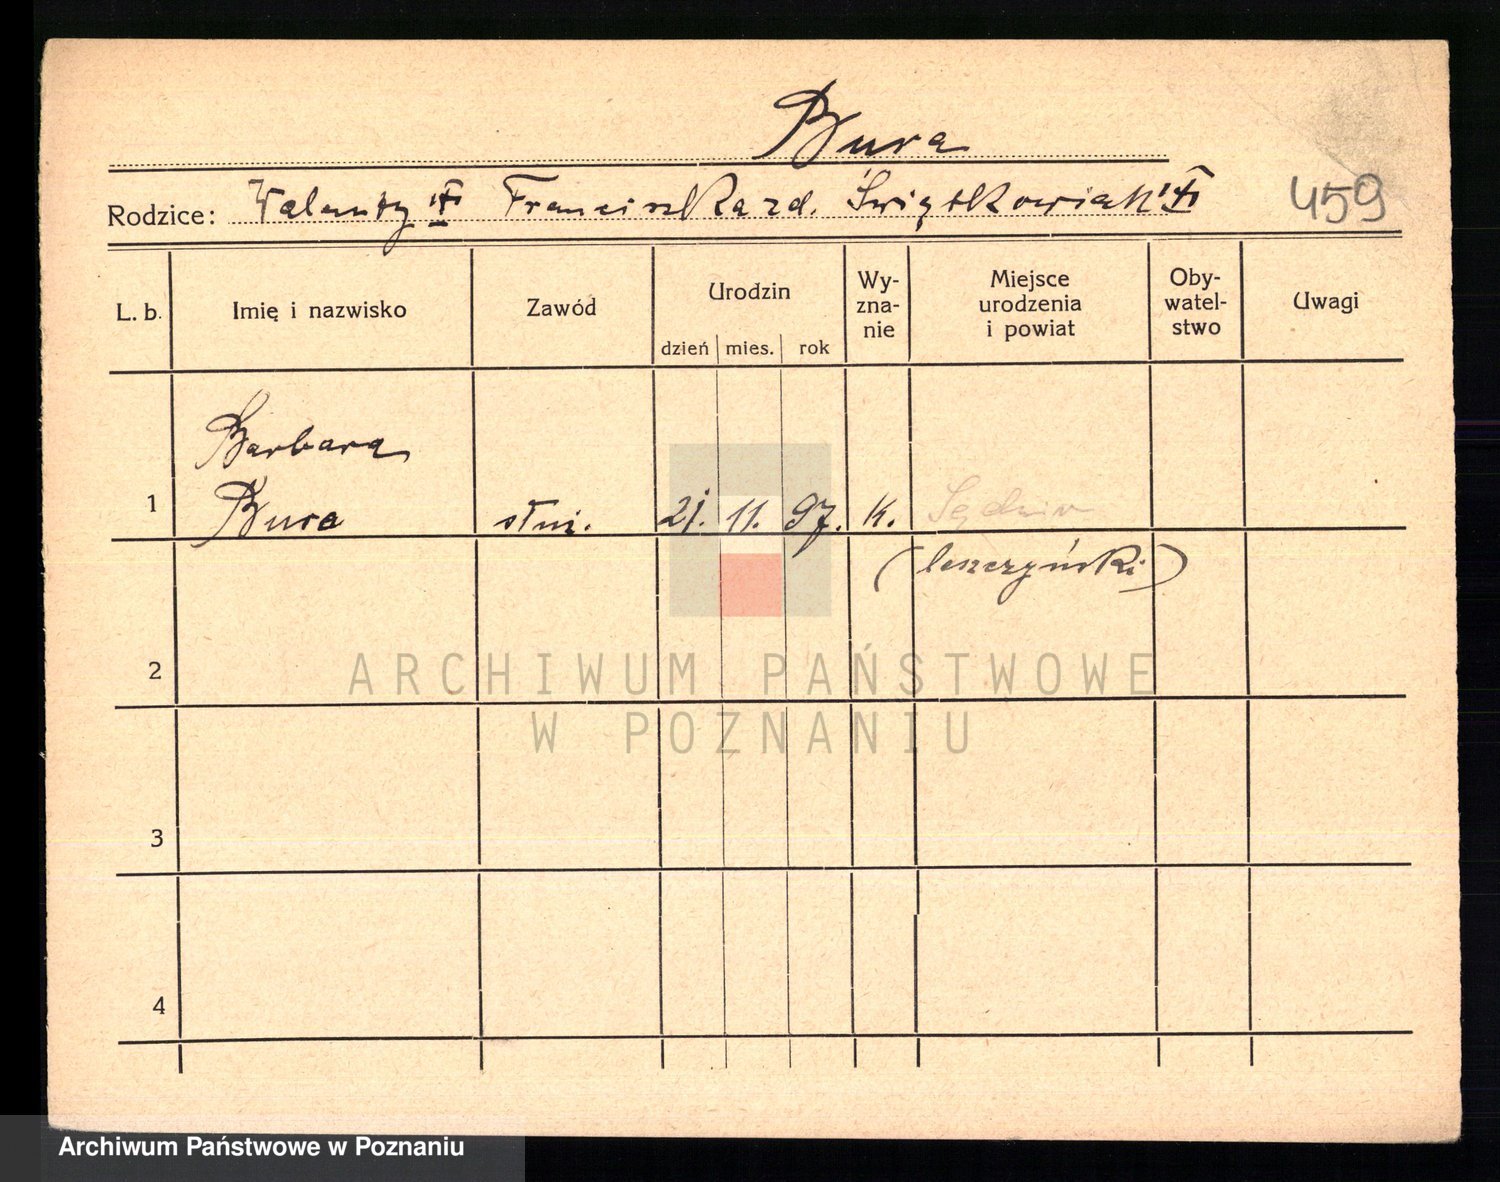 Bura
Rodzice: Walenty Franciszka zd. Świątkowiak 459
L. b. Imię i nazwisko Zawód Urodzin Wyznanie Miejsce urodzenia i powiat Obywatelstwo Uwagi
dzień mies. rok
Barbara
1 Bura służ. 21. 11. 97. k.
(leszczyński)
2
ARCHIWUM PAŃSTWOWE
W POZNANIU
3
4
Archiwum Państwowe w Poznaniu